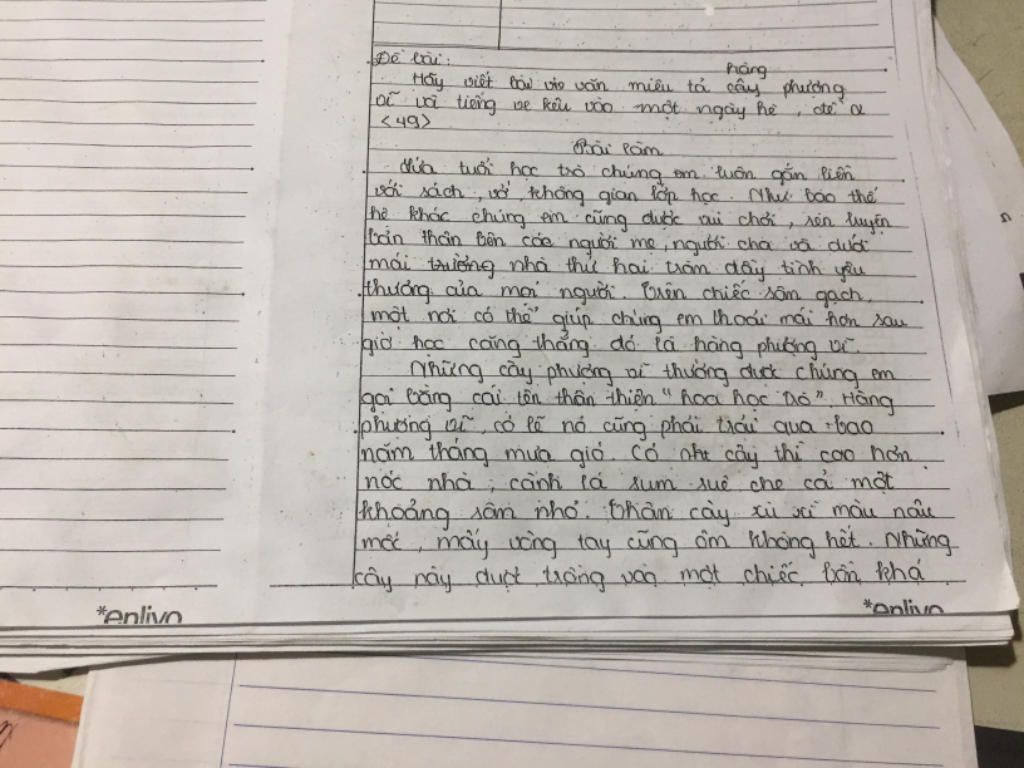 Đề bài:
hàng
Hãy viết bài vio văn miêu tả cây phượng
vĩ và tiếng ve kêu vào một ngày hè, đề a
<49>
Bài làm
Lứa tuổi học trò chúng em luôn gắn liền
với sách, vở, không gian lớp học. Như bao thế
hệ khác chúng em cũng được vui chơi, rèn luyện
bản thân bên các người mẹ, người cha và dưới
mái trường nhà thứ hai tràn đầy tình yêu
thương của mọi người. Trên chiếc sân gạch,
một nơi có thể giúp chúng em thoải mái hơn sau
giờ học căng thẳng đó là hàng phượng vĩ.
Những cây phượng vĩ thường được chúng em
gọi bằng cái tên thân thiện "hoa học trò". Hàng
phượng vĩ, có lẽ nó cũng phải trải qua bao
năm tháng mưa gió. Có cây thì cao hơn
nóc nhà, cành lá sum suê che cả một
khoảng sân nhỏ. Thân cây xù xì màu nâu
mốc, mấy vòng tay cũng ôm không hết. Những
cây này được trồng vào một chiếc bồn khá
*enlivo
*enlivo